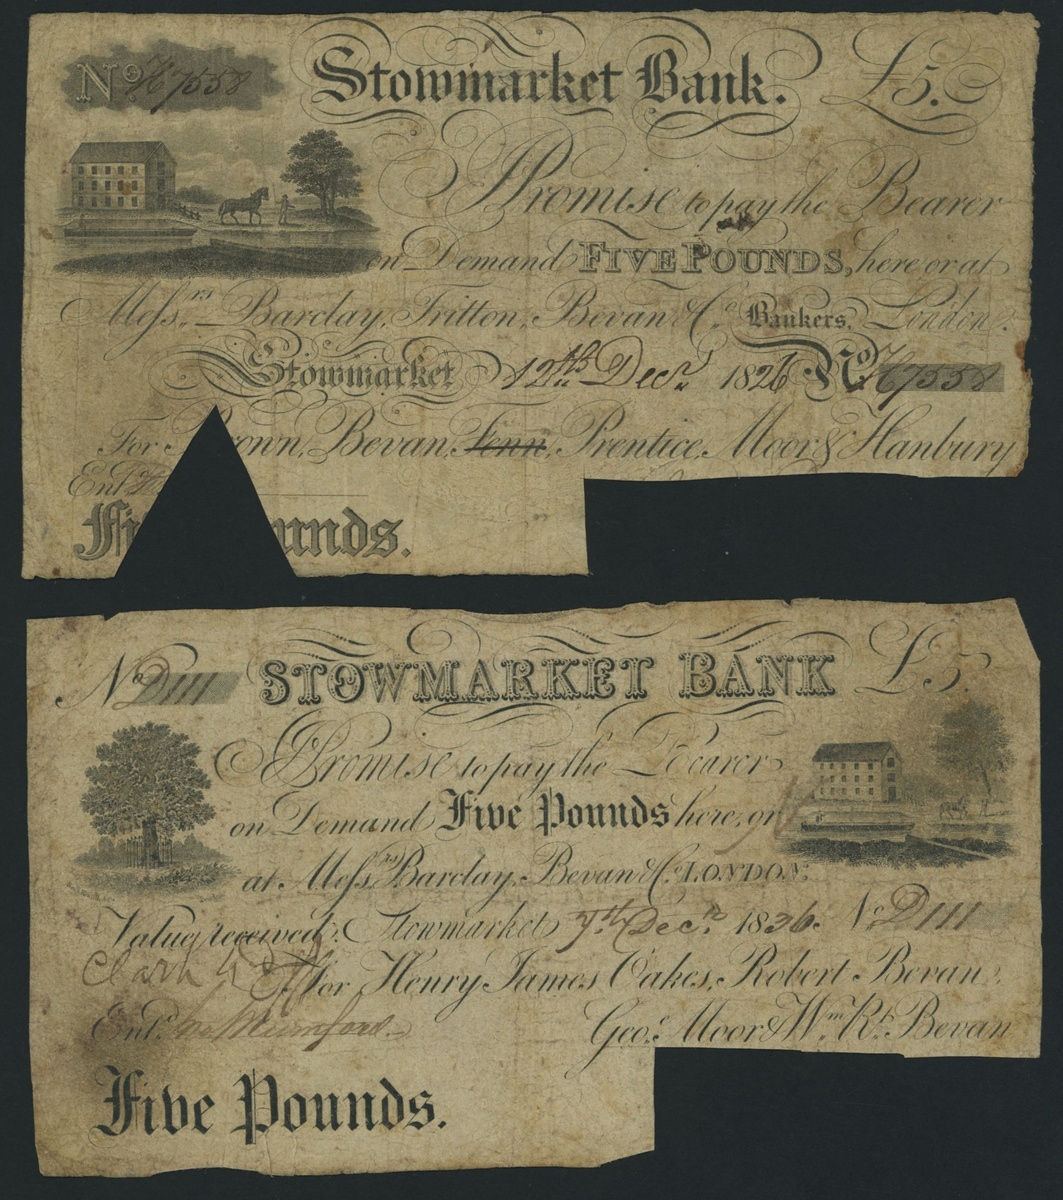 No. H7558 Stowmarket Bank. £5.
I Promise to pay the Bearer
on Demand FIVE POUNDS, here or at
Messrs. Barclay, Tritton, Bevan & Co. Bankers, London.
Stowmarket 12th Decr. 1826 No. H7558
For Brown, Bevan, Fenn, Prentice, Moor & Hanbury
Entd.
Fi unds.
No. D111 STOWMARKET BANK £5
I Promise to pay the Bearer
on Demand Five Pounds here, or
at Messrs. Barclay, Bevan & Co. LONDON.
Value received. Stowmarket 7th Decr. 1836. No. D111
Clark
For Henry James Oakes, Robert Bevan,
Entd. Mumford
Geo. Moor & Wm. Rt. Bevan
Five Pounds.